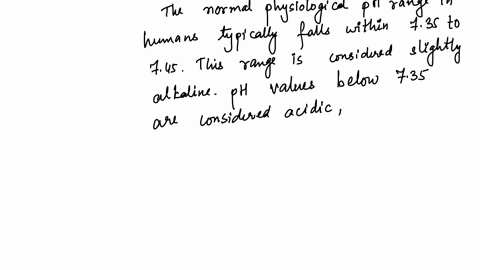 The normal physiological pH range in
humans typically falls within 7.35 to
7.45. This range is considered slightly
alkaline. pH values below 7.35
are considered acidic,